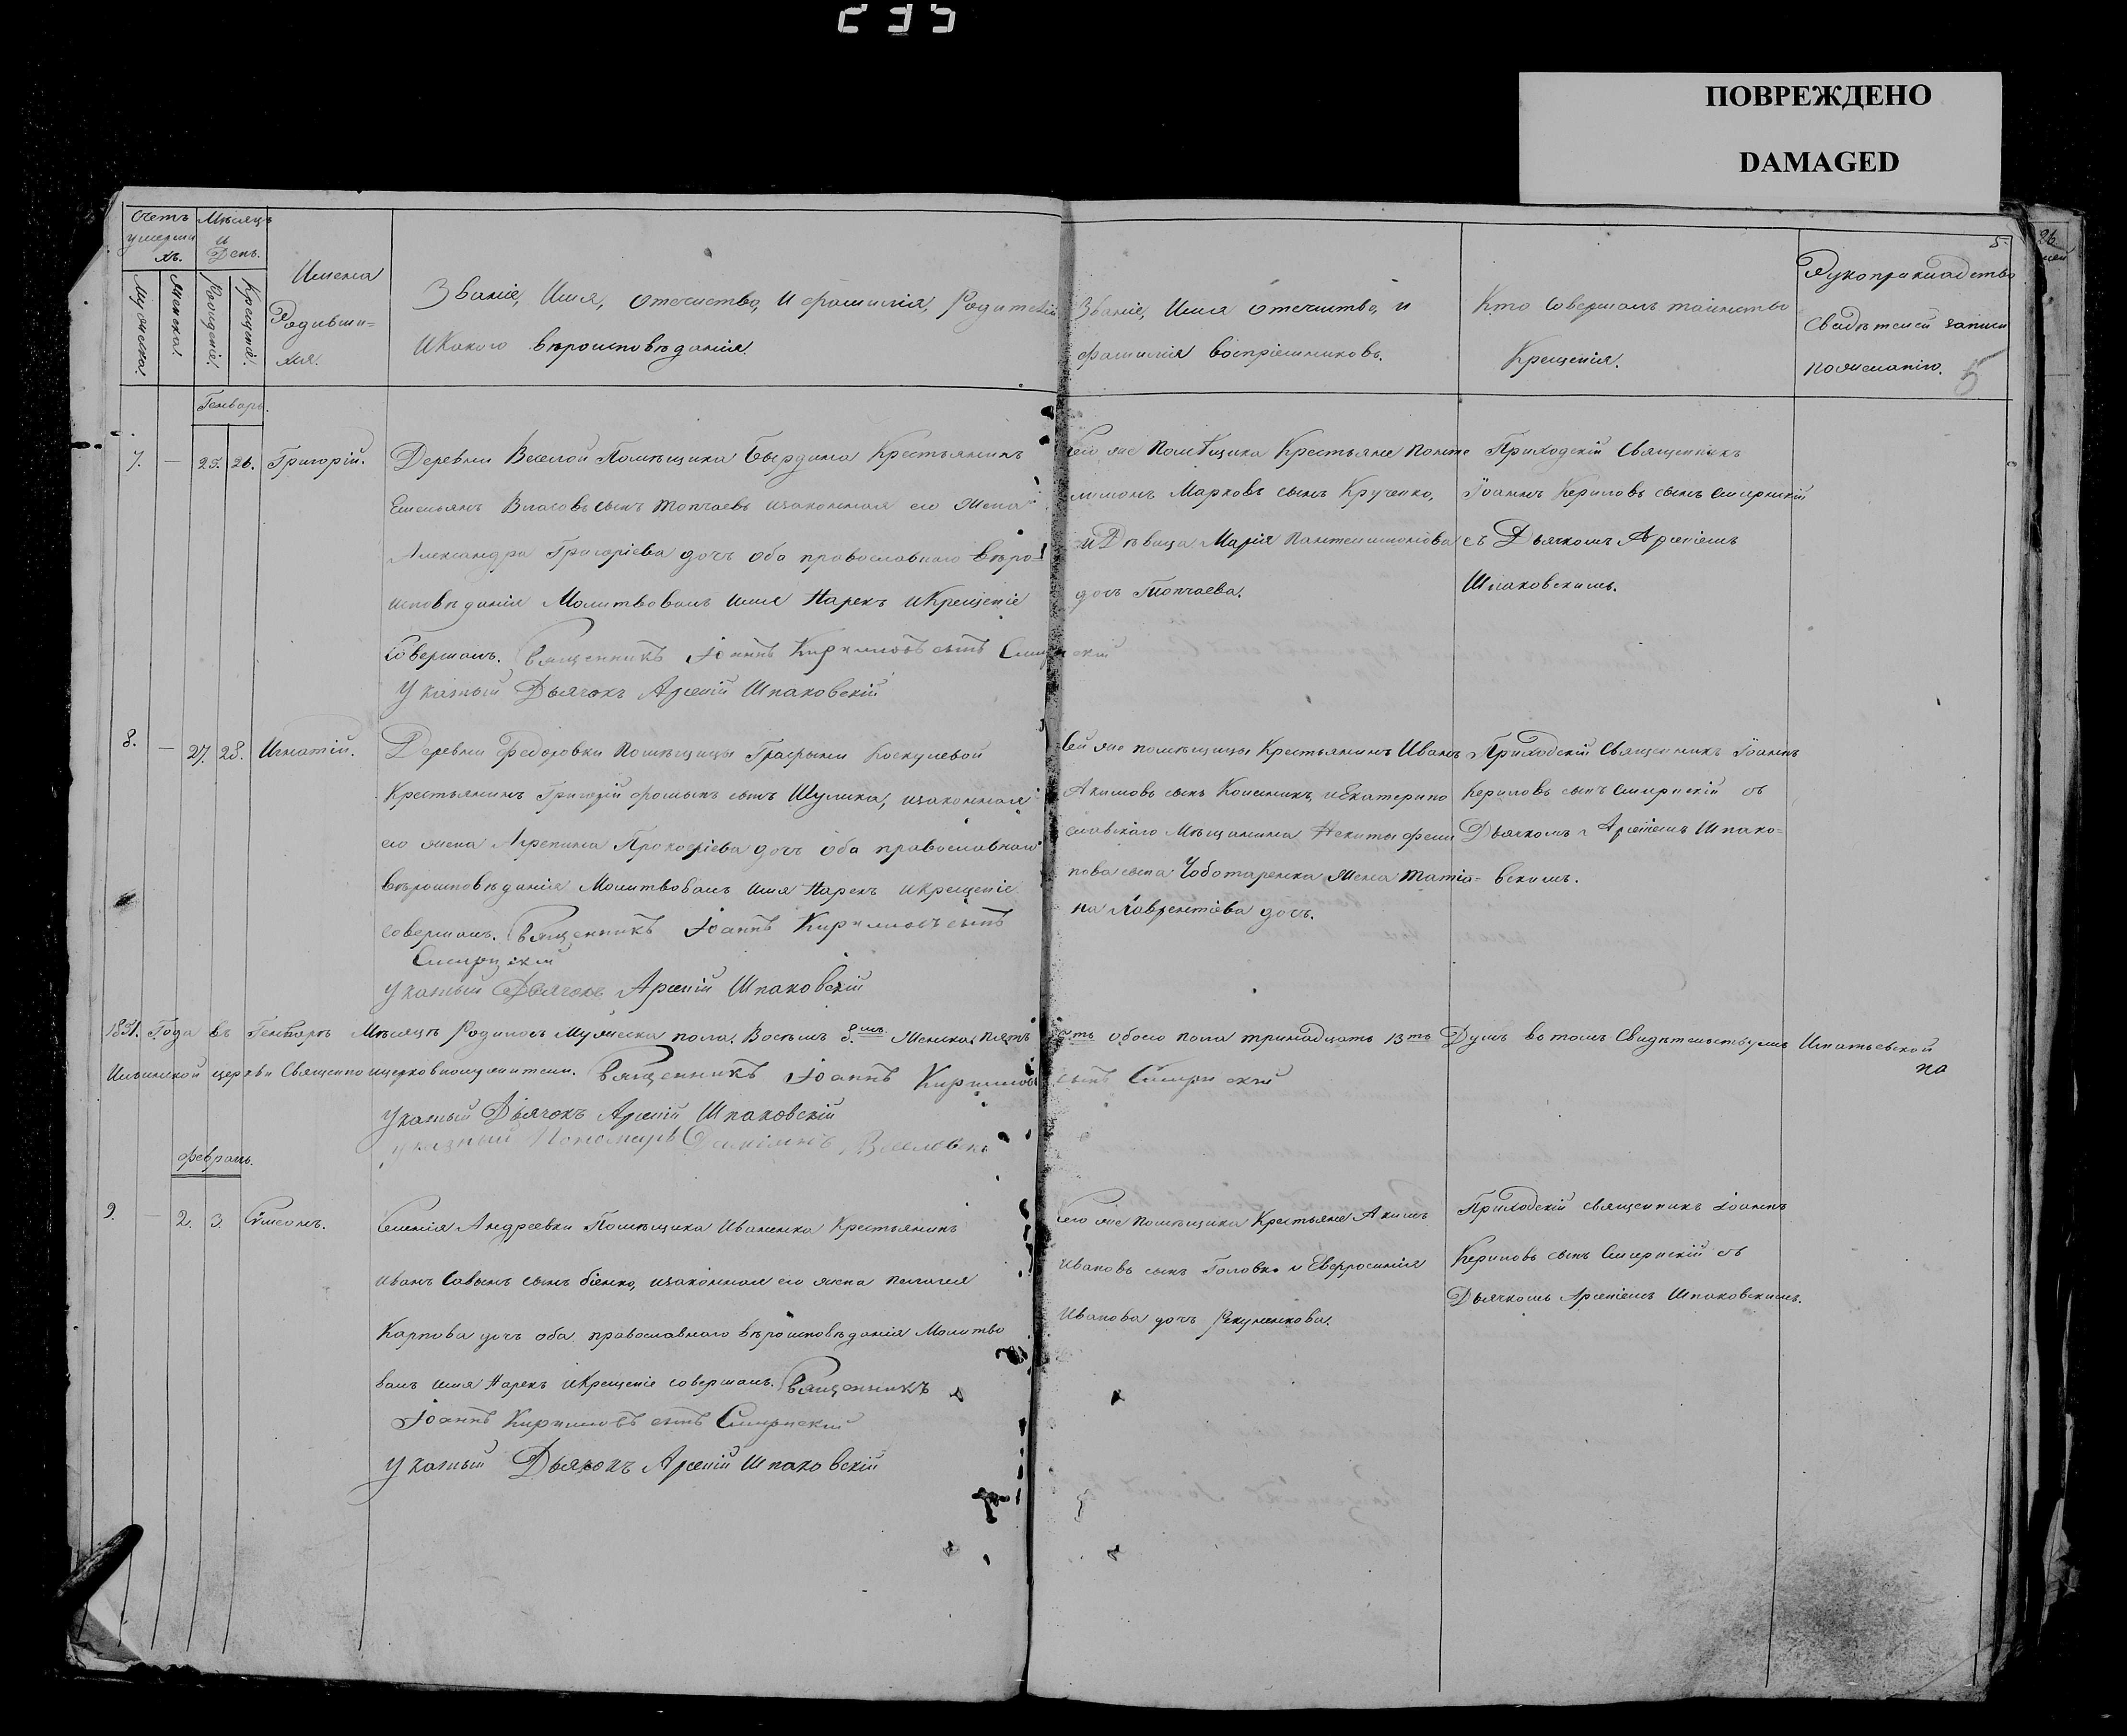 235
ПОВРЕЖДЕНО
DAMAGED
Счетъ
умерши
хъ.
Мѣсяцъ
и
День.
Мужеска.
Женска.
Рожденія.
Крещенія.
Имена
Родивши-
хся.
Званіе, Имя, Отечиство, и фамилія, Родителей
и Какого вѣроисповѣданія.
Званіе, Имя отечитво, и
фамилія воспріемниковъ.
Кто Совершалъ таинство
Крещенія.
5.
Рукоприкладство
Свидѣтелей записи
по желанію.
5
26
Генварь.
7. — 25. 26. Григорій.
Деревни Веселой Помѣщика Крестьянинъ
Емельянъ Власовъ сынъ Топчаевъ изаконная его жена
Александра Григоріева дочъ оба православного вѣро-
исповѣданія Молитвовалъ имя Нарекъ и Крещеніе
Совершалъ. Священникъ Іоаннъ Кирилловъ сынъ Смирнскій
Указный Дьячокъ Арсеній Шпаковскій
Его же Помѣщика Крестьяне Панте
лимонъ Марковъ сынъ Крученко,
и Дѣвица Марія Пантелимонова
дочъ Топчаева.
Приходскій Священникъ
Іоаннъ Кериловъ сынъ Смирнскій
съ Дьячкомъ Арсеніемъ
Шпаковскимъ.
8. — 27. 28. Игнатій.
Деревни Федоровки Помѣщицы Графыни
Крестьянинъ Григорій сынъ Шулика, изаконная
его жена Агрепина Прокофіева дочъ оба православного
вѣроисповѣданія Молитвовалъ имя Нарекъ и крещеніе
совершалъ. Священникъ Іоаннъ Кирилловъ сынъ
Смирнскій
указный Дьячокъ Арсеній Шпаковскій
Сей же помѣщицы Крестьянинъ Иванъ
Акимовъ сынъ и Екатерино
славскаго Мѣщанина Никиты
пова сына Чоботаренка жена Татіа-
на Лаврентіева дочъ.
Приходскій Священникъ Іоаннъ
Кериловъ сынъ Смирнскій съ
Дьячкомъ Арсеніемъ Шпако-
вскимъ.
1831. Года въ Генварѣ Мѣсяцѣ Родилось Мужеска пола. Восемь 8. Женска, пять 5.ть обоего пола тринадцать 13ть Душъ въ томъ Свидѣтельствуемъ Игнатьевской
Ильинской церкви Священно ицерковнослужители. Священникъ Іоаннъ Кирилловъ сынъ Смирнскій
на
Указный Дьячокъ Арсеній Шпаковскій
указный Пономарь
февраль.
9. — 2. 3. Симеонъ.
Селенія Андреевки Помѣщика Иваненка Крестьянинъ
Иванъ сынъ біенко, изаконная его жена Пелагея
Карпова дочъ оба православнаго вѣроисповѣданія Молитво
валъ имя Нарекъ и Крещеніе совершалъ. Священникъ
Іоаннъ Кирилловъ сынъ Смирнскій
указный Дьячокъ Арсеній Шпаковскій
Его же помѣщика Крестьяне Акимъ
Ивановъ сынъ Головко и Евфросинія
Иванова дочъ
Приходскій священникъ Іоаннъ
Кериловъ сынъ Смирнскій съ
Дьячкомъ Арсеніемъ Шпаковскимъ.